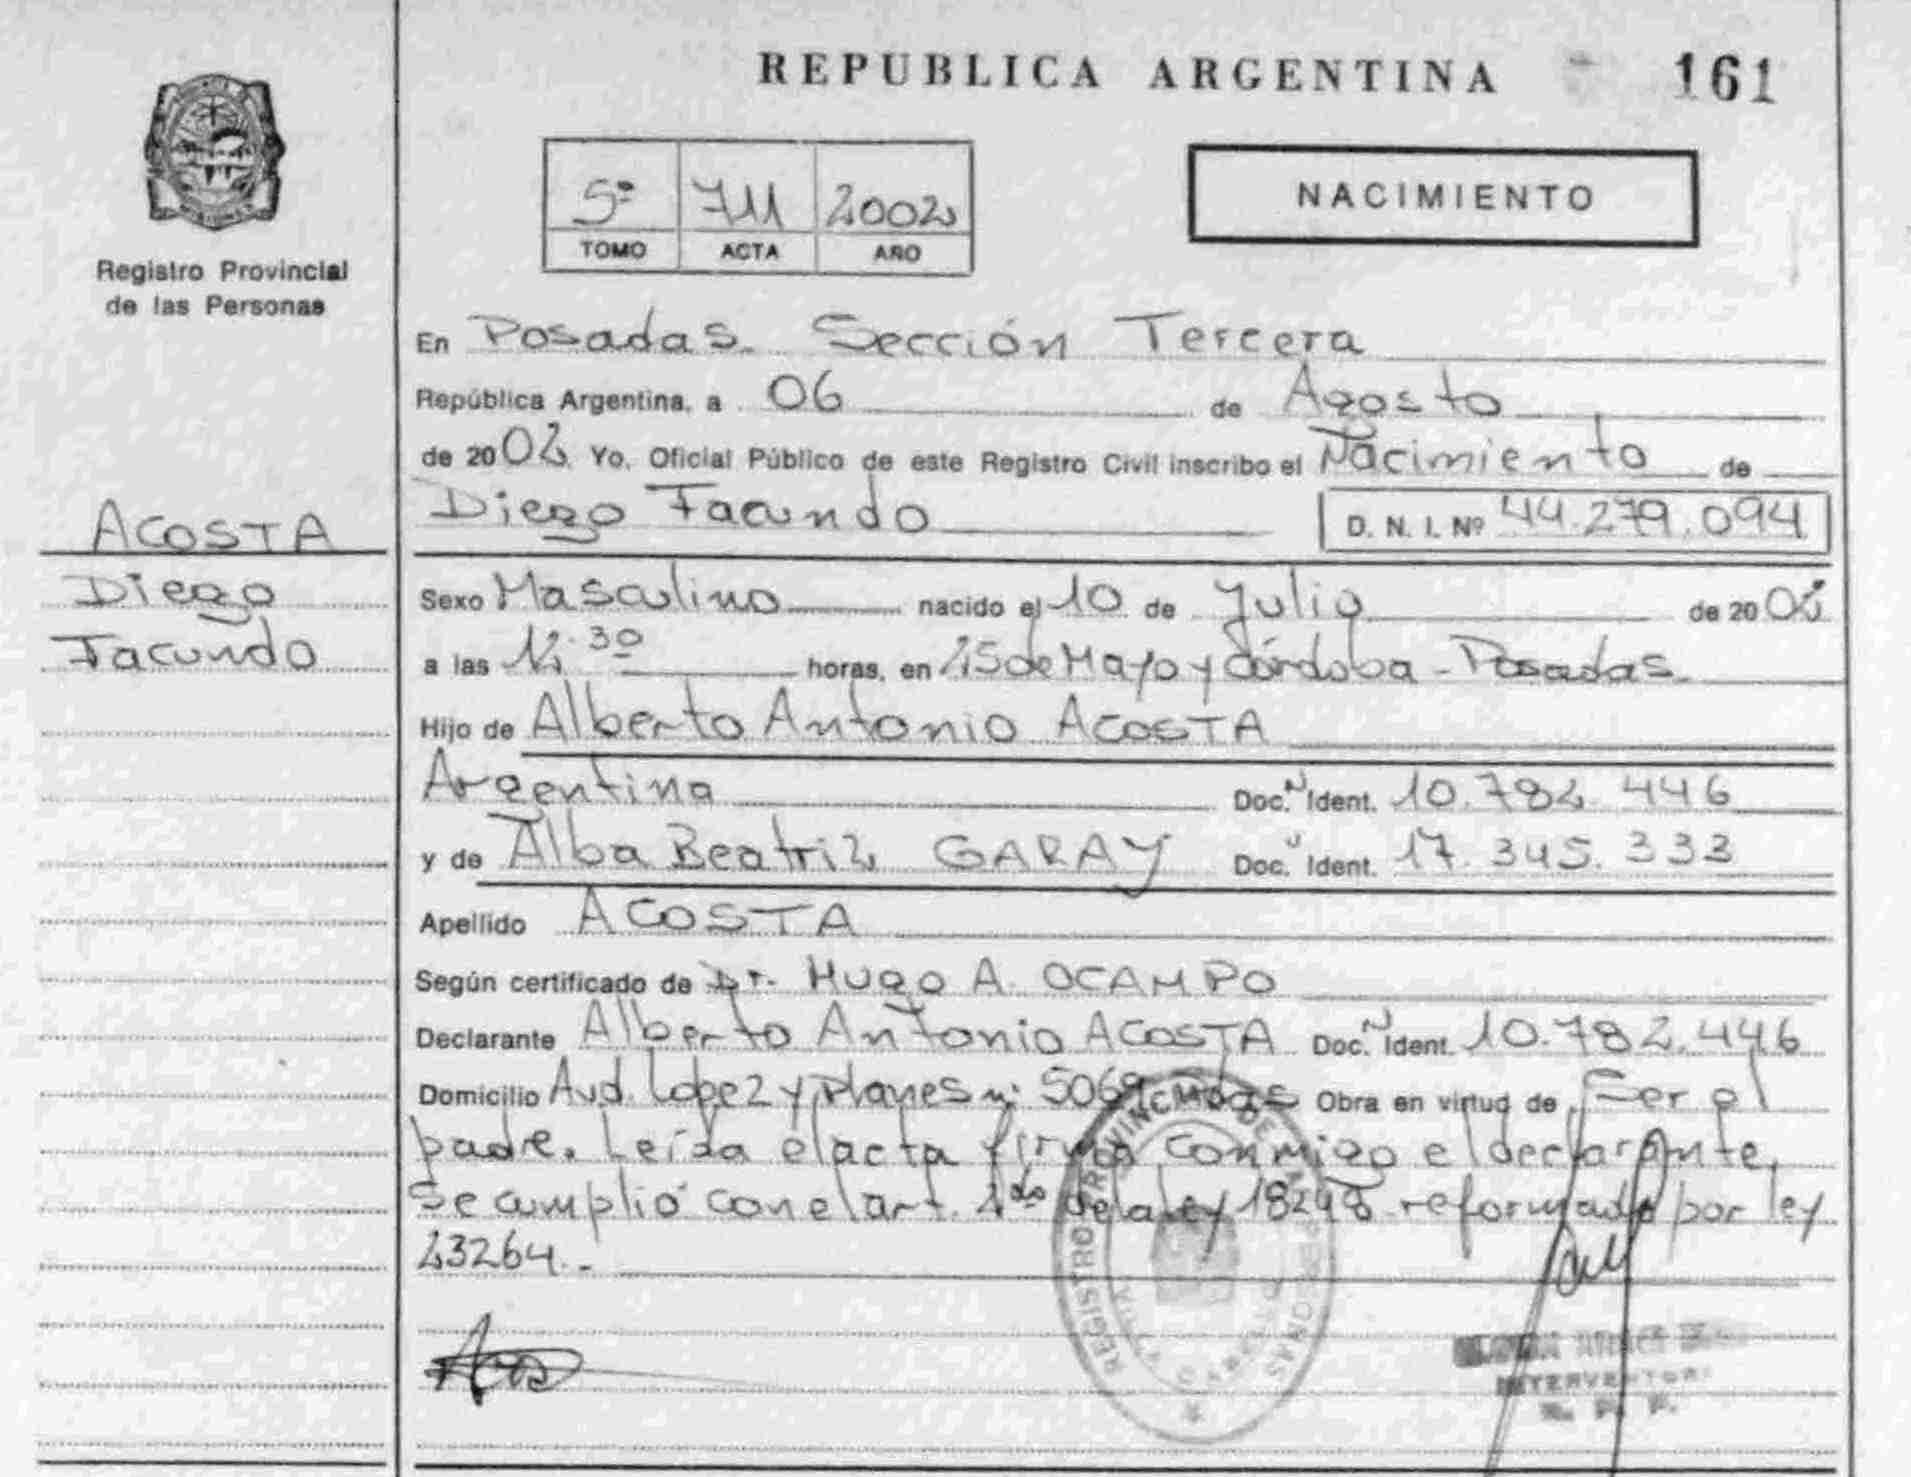 REPUBLICA ARGENTINA 161
5º 711 2002
TOMO ACTA AÑO
NACIMIENTO
Registro Provincial
de las Personas
En Posadas. Sección Tercera
República Argentina, a 06 de Agosto
de 2002 Yo, Oficial Público de este Registro Civil inscribo el Nacimiento de
Diego Facundo D. N. I. Nº 44.279.094
ACOSTA
Diego
Facundo
Sexo Masculino nacido el 10 de Julio de 2002
a las 12.30 horas, en 25 de Mayo y Córdoba - Posadas
Hijo de Alberto Antonio ACOSTA
Argentina Doc. N Ident. 10.782.446
y de Alba Beatriz GARAY Doc. N Ident. 17.345.333
Apellido ACOSTA
Según certificado de Dr. HUGO A. OCAMPO
Declarante Alberto Antonio ACOSTA Doc. N Ident. 10.782.446
Domicilio Avd. Lopez y Planes nº 5069 Obra en virtud de Ser el
padre. Leída el acta firma conmigo el declarante,
se cumplió con el art. 2do de la ley 18248 reformado por ley
23264.-
REGISTRO PROVINCIAL DE LAS PERSONAS
INTERVENTORA